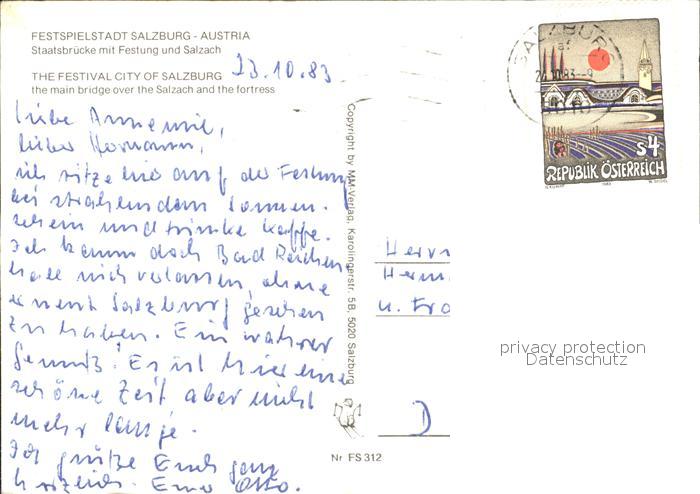 FESTSPIELSTADT SALZBURG - AUSTRIA
Staatsbrücke mit Festung und Salzach
THE FESTIVAL CITY OF SALZBURG
the main bridge over the Salzach and the fortress
23.10.83
Liebe Annemie,
lieber Hermann,
ich sitze hier auf der Festung
bei strahlendem Sonnen-
schein und trinke Kaffe.
Ich kann doch Bad Reichen
hall nicht verlassen, ohne
erneut Salzburg gesehen
zu haben. Ein wahrer
Genuß! Es ist hier eine
schöne Zeit aber nicht
mehr lange.
Ich grüße Euch ganz
herzlich. Euer Otto.
Copyright by MM-Verlag, Karolingerstr. 5B, 5020 Salzburg
SALZBURG
S4
REPUBLIK ÖSTERREICH
1983
Herrn
Herm
u. Fra
privacy protection
Datenschutz
D
Nr FS 312